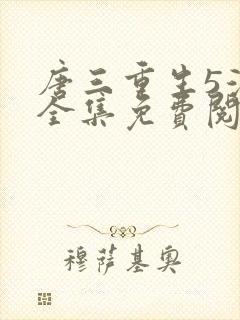 唐三重生5
全集免費閱
穆萨基奥